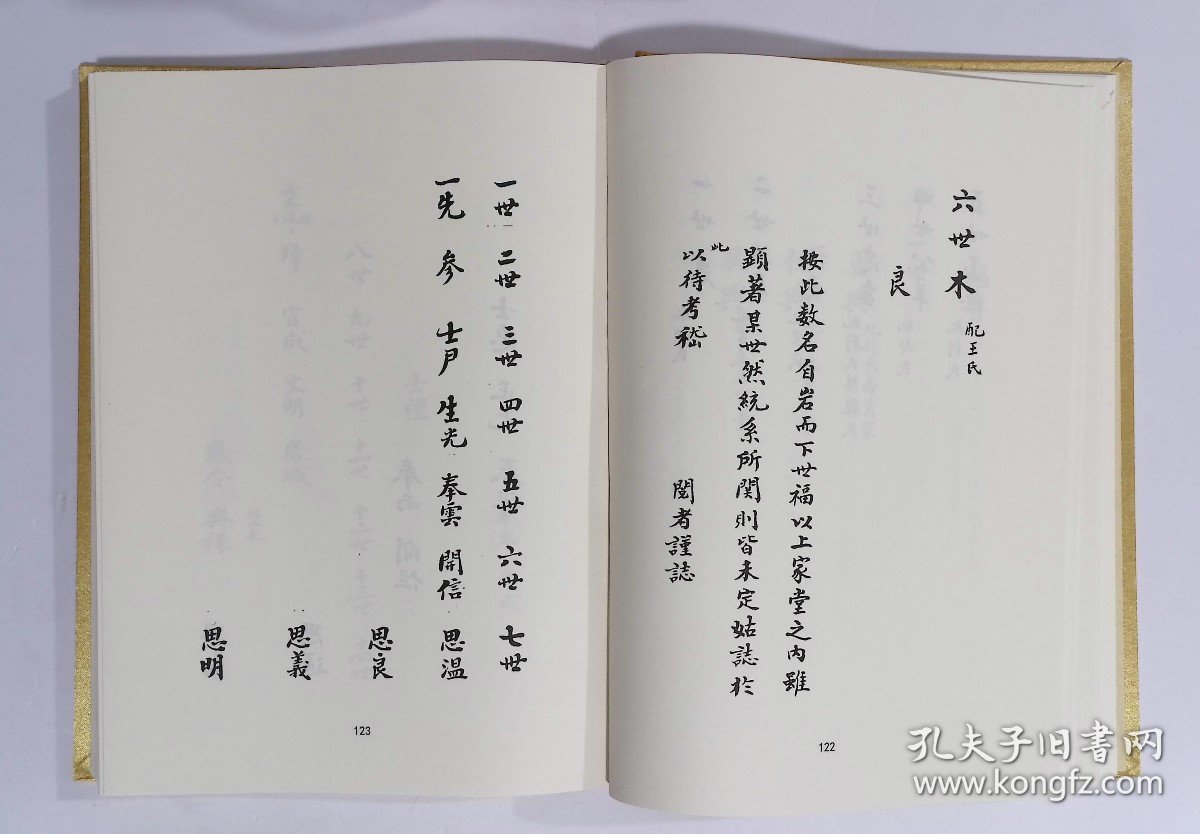 六世 木 配王氏
良
按此数名自岩而下世福以上家堂之内雖
顕著某世然統系所関則皆未定姑誌於
此
以待考嵇 閲者謹誌
122
一世 二世 三世 四世 五世 六世 七世
一先 参 士戸 生光 奉雲 開信 思温
思良
思義
思明
123
孔夫子旧書网
www.kongfz.com